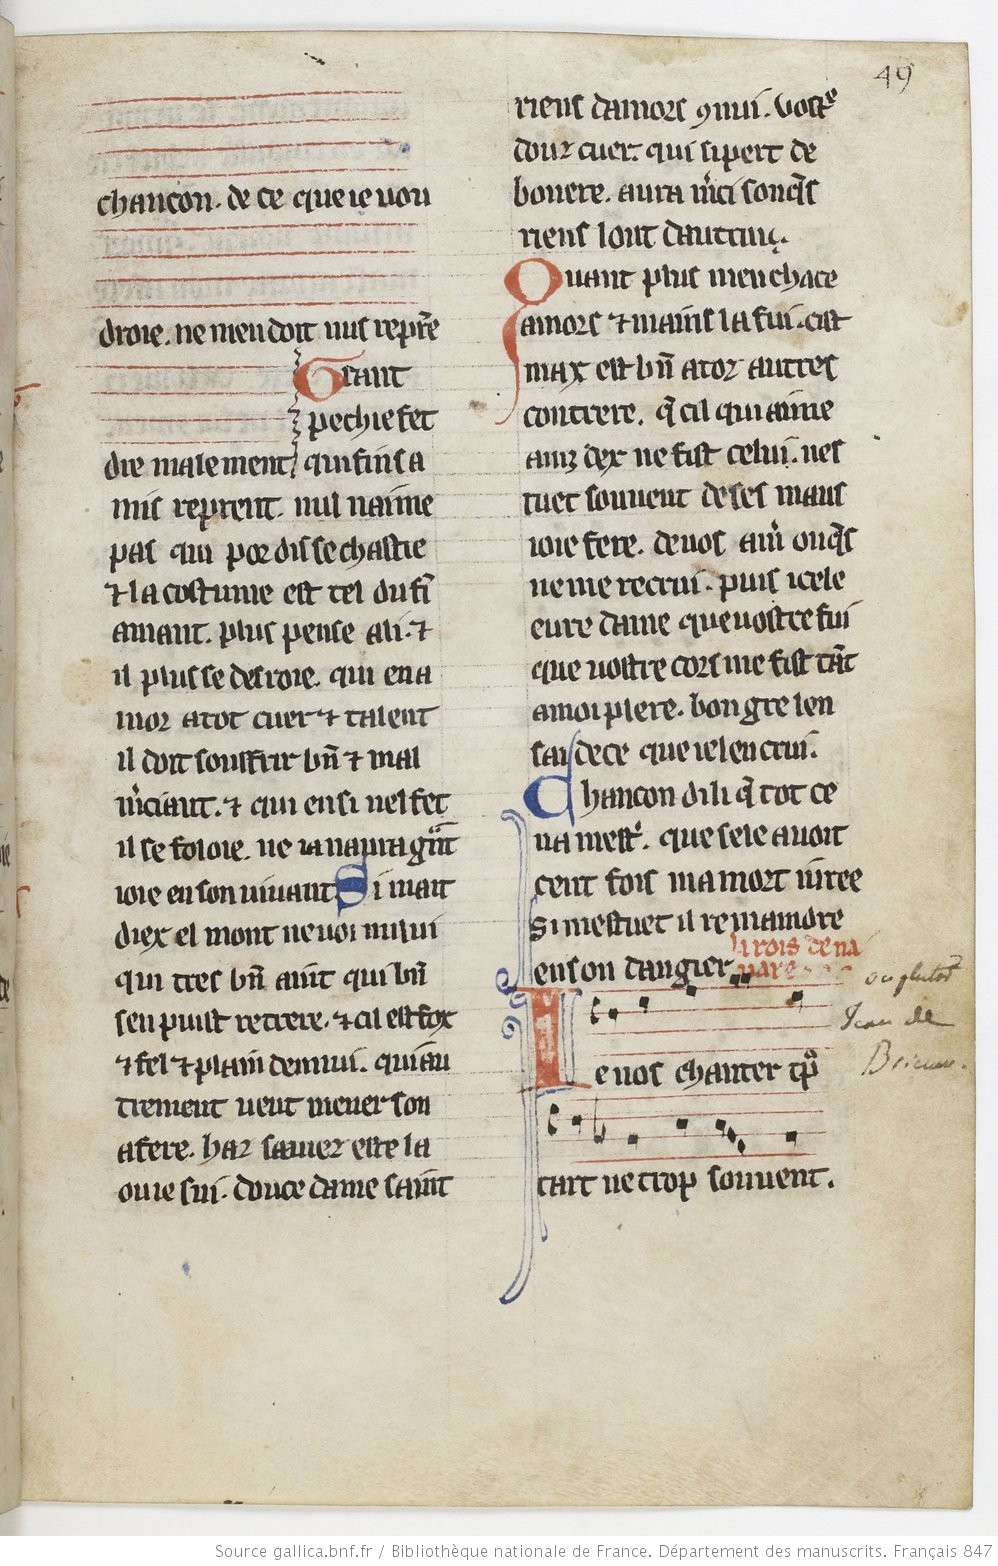 49
chancon. de ce que ie uou
droie. ne men doit nus repr̃e
Grant
pechie fet
die malement, qui fins a
mis reprent. nul naime
pas qui por dis se chastie
⁊ la costume est tel du fĩ
amant. plus pense a li. ⁊
il plus se desroie. qui en a
mor a tot cuer ⁊ talent
il doit souffrir bñ ⁊ mal
m̃ciant. ⁊ qui ensi nel fet
il se foloie. ne ia naura g̃nt
ioie en son uiuant Si mait
diex el mont ne uoi nului
qui tres bñ aint qui bñ
sen puist retrere. ⁊ cil est fox
⁊ fel ⁊ plaĩ dennui. qui au
trement ueut mener son
afere. har sauiez estre la
ou ie sui. douce dame saint
riens damors ꝯnui. vostrͤ
douz cuer. qui si pert de
bonere. aura m̃ci sonq̃s
riens lout dautrui.
Quant plus menchace
amors ⁊ mains la fui. cist
max est bñ a toz autres
contrere. q̃ cil qui aime
ainz dex ne fist celui. nes
tuet souuent de ses maus
ioie fere. de uos am̃ onq̃s
ne me recrui. puis icele
eure dame que uostre fui
que uostre cors me fist tãt
a moi plere. bon gre len
sai de ce que ie len crui.
Chancon di li q̃ tot ce
na mest̃. que sele auoit
cent fois ma mort iuree
si mestuet il remanore
en son dangier
li rois de na
uare
Ie uos chanter tp̃
tart ne trop souuent.
ou plutost
Jean de
Brienne.
Source gallica.bnf.fr / Bibliothèque nationale de France. Département des manuscrits. Français 847